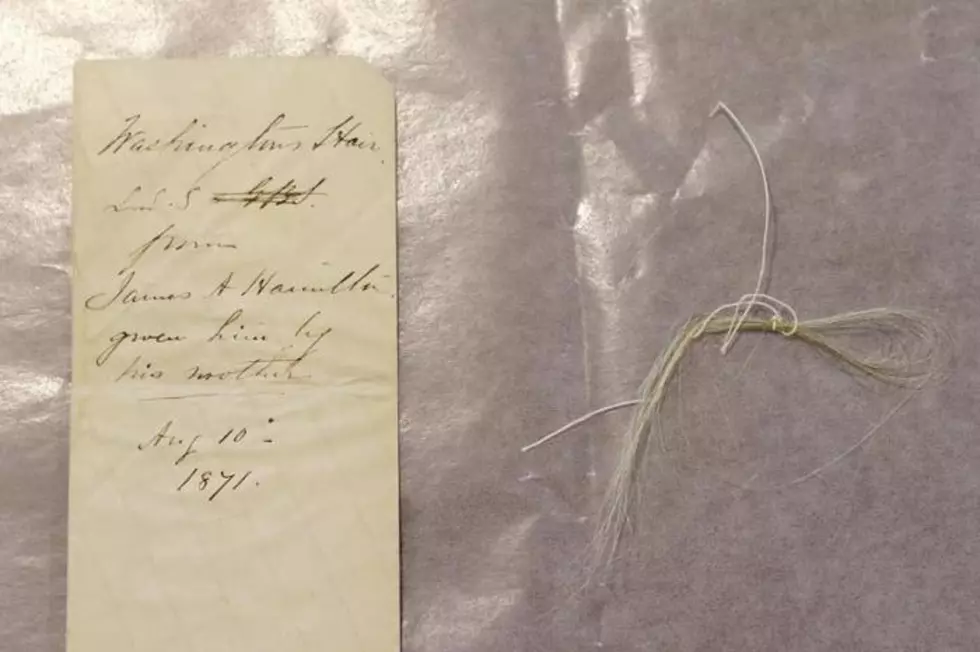 Washington's Hair,
from
James A Hamilton.
given him by
his mother
Aug 10th
1871.